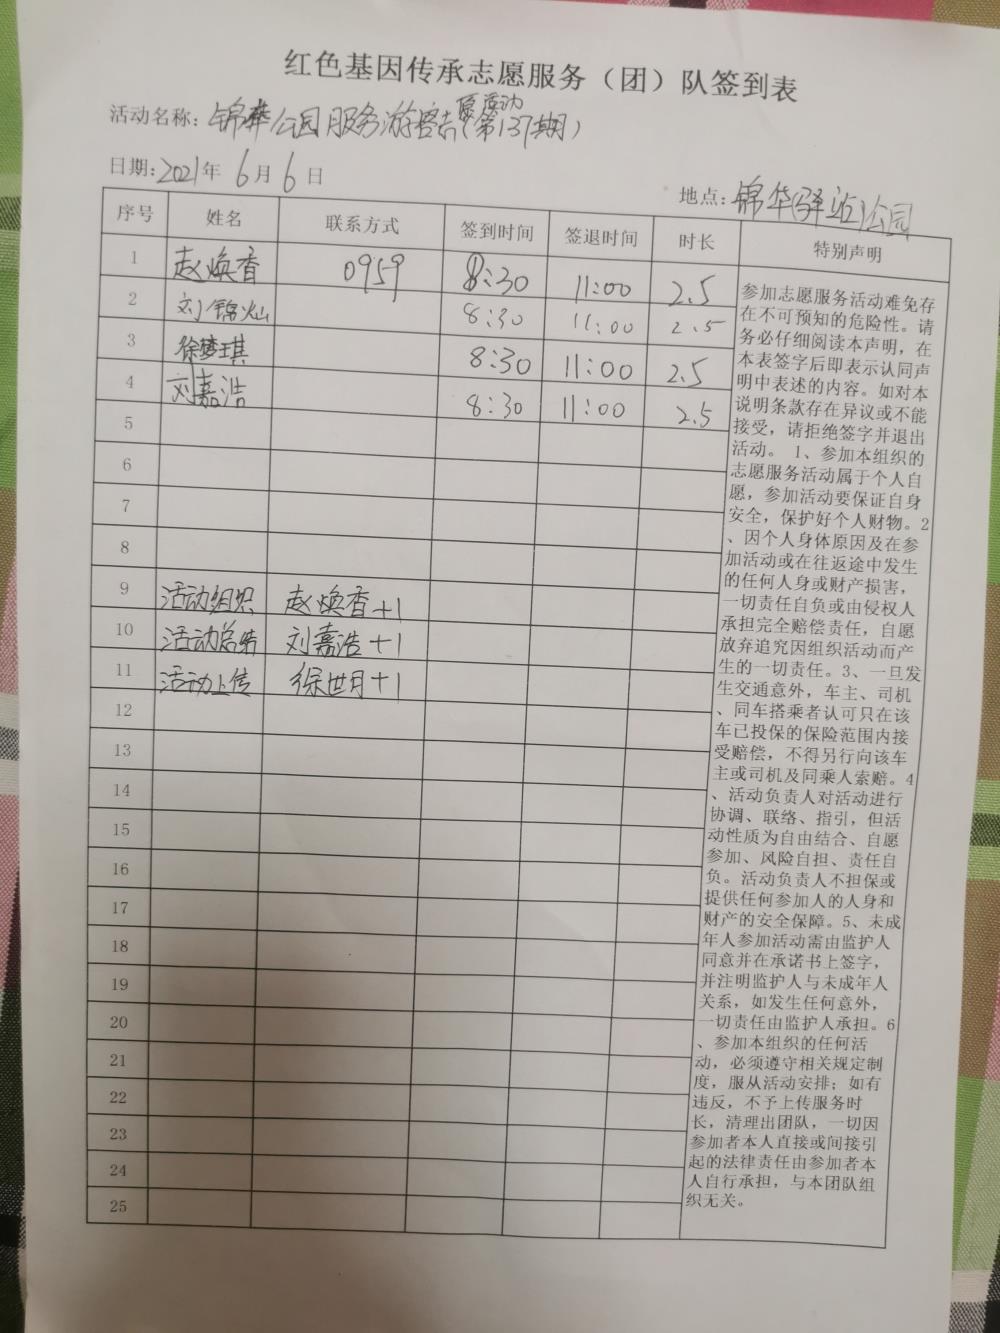 红色基因传承志愿服务（团）队签到表
愿活动
活动名称：锦华公园服务游客志（第137期）
日期：2021年6月6日
地点：锦华(驿站)公园
序号 姓名 联系方式 签到时间 签退时间 时长 特别声明
1 赵焕香 0959 8:30 11:00 2.5
2 刘锦灿 8:30 11:00 2.5
3 徐梦琪 8:30 11:00 2.5
4 刘嘉浩 8:30 11:00 2.5
5
6
7
8
9 活动组织 赵焕香+1
10 活动总结 刘嘉浩+1
11 活动上传 徐世月+1
12
13
14
15
16
17
18
19
20
21
22
23
24
25
参加志愿服务活动难免存
在不可预知的危险性。请
务必仔细阅读本声明，在
本表签字后即表示认同声
明中表述的内容。如对本
说明条款存在异议或不能
接受，请拒绝签字并退出
活动。 1、参加本组织的
志愿服务活动属于个人自
愿，参加活动要保证自身
安全，保护好个人财物。2
、因个人身体原因及在参
加活动或在往返途中发生
的任何人身或财产损害，
一切责任自负或由侵权人
承担完全赔偿责任，自愿
放弃追究因组织活动而产
生的一切责任。3、一旦发
生交通意外，车主、司机
、同车搭乘者认可只在该
车已投保的保险范围内接
受赔偿，不得另行向该车
主或司机及同乘人索赔。4
、活动负责人对活动进行
协调、联络、指引，但活
动性质为自由结合、自愿
参加、风险自担、责任自
负。活动负责人不担保或
提供任何参加人的人身和
财产的安全保障。5、未成
年人参加活动需由监护人
同意并在承诺书上签字，
并注明监护人与未成年人
关系，如发生任何意外，
一切责任由监护人承担。6
、参加本组织的任何活
动，必须遵守相关规定制
度，服从活动安排；如有
违反，不予上传服务时
长，清理出团队，一切因
参加者本人直接或间接引
起的法律责任由参加者本
人自行承担，与本团队组
织无关。